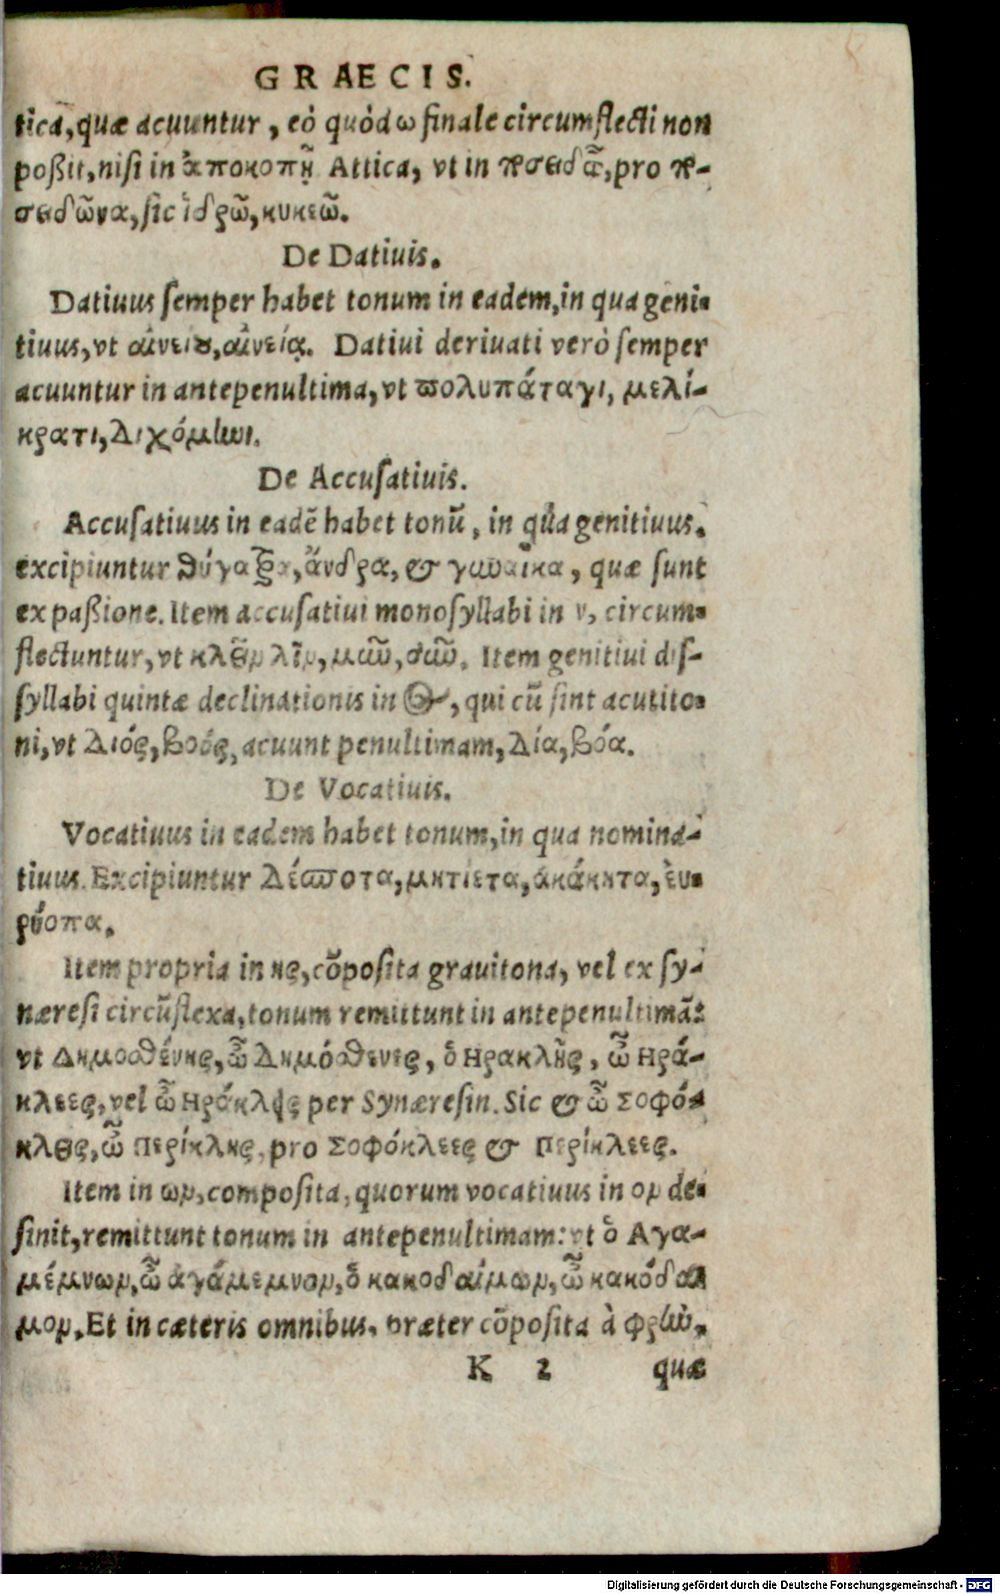 GRAECIS.
tica, quæ acuuntur, eò quòd ω finale circumflecti non
poßit, nisi in ἀποκοπῇ Attica, vt in ποσειδῶ, pro πο-
σειδῶνα, sic ἱδρῶ, κυκεῶ.
De Datiuis.
Datiuus semper habet tonum in eadem, in qua geni-
tiuus, vt αἰνείου, αἰνείᾳ. Datiui deriuati verò semper
acuuntur in antepenultima, vt πολυπάταγι, μελί-
κρατι, Διχόμηνι.
De Accusatiuis.
Accusatiuus in eadē habet tonū, in qua genitiuus.
excipiuntur θύγατρα, ἄνδρα, & γυναῖκα, quæ sunt
ex paßione. Item accusatiui monosyllabi in ν, circum-
flectuntur, vt κλεῖν λῖν, μῦν, σῦν. Item genitiui dis-
syllabi quintæ declinationis in ος, qui cū sint acutito-
ni, vt Διός, βοός, acuunt penultimam, Δία, βόα.
De Vocatiuis.
Vocatiuus in eadem habet tonum, in qua nomina-
tiuus. Excipiuntur Δέσποτα, μητίετα, ἀκάκητα, εὐ-
ρύοπα.
Item propria in ης, cōposita grauitona, vel ex sy-
næresi circūflexa, tonum remittunt in antepenultimā:
vt Δημοσθένης, ὦ Δημόσθενες, ὁ Ηρακλῆς, ὦ Ηρά-
κλεες, vel ὦ Ηράκλεις per Synæresin. Sic & ὦ Σοφό-
κλεις, ὦ Περίκλης, pro Σοφόκλεες & Περίκλεες.
Item in ων, composita, quorum vocatiuus in ον de-
sinit, remittunt tonum in antepenultimam: vt ὁ Αγα-
μέμνων, ὦ ἀγάμεμνον, ὁ κακοδαίμων, ὦ κακόδαι
μον. Et in cæteris omnibus, præter cōposita à φρὴν,
K 2 quæ
Digitalisierung gefördert durch die Deutsche Forschungsgemeinschaft - DFG